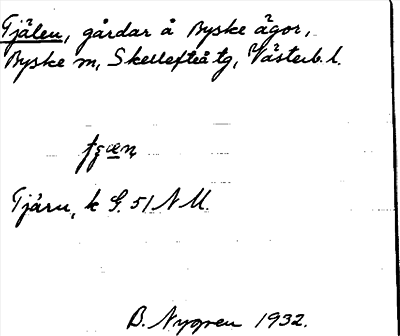 Tjälen, gårdar å Byske ägor,
Byske m, Skellefteå tg, Västerb. l.
Tjärn, k G. 51 N U.
B. Nygren 1932.